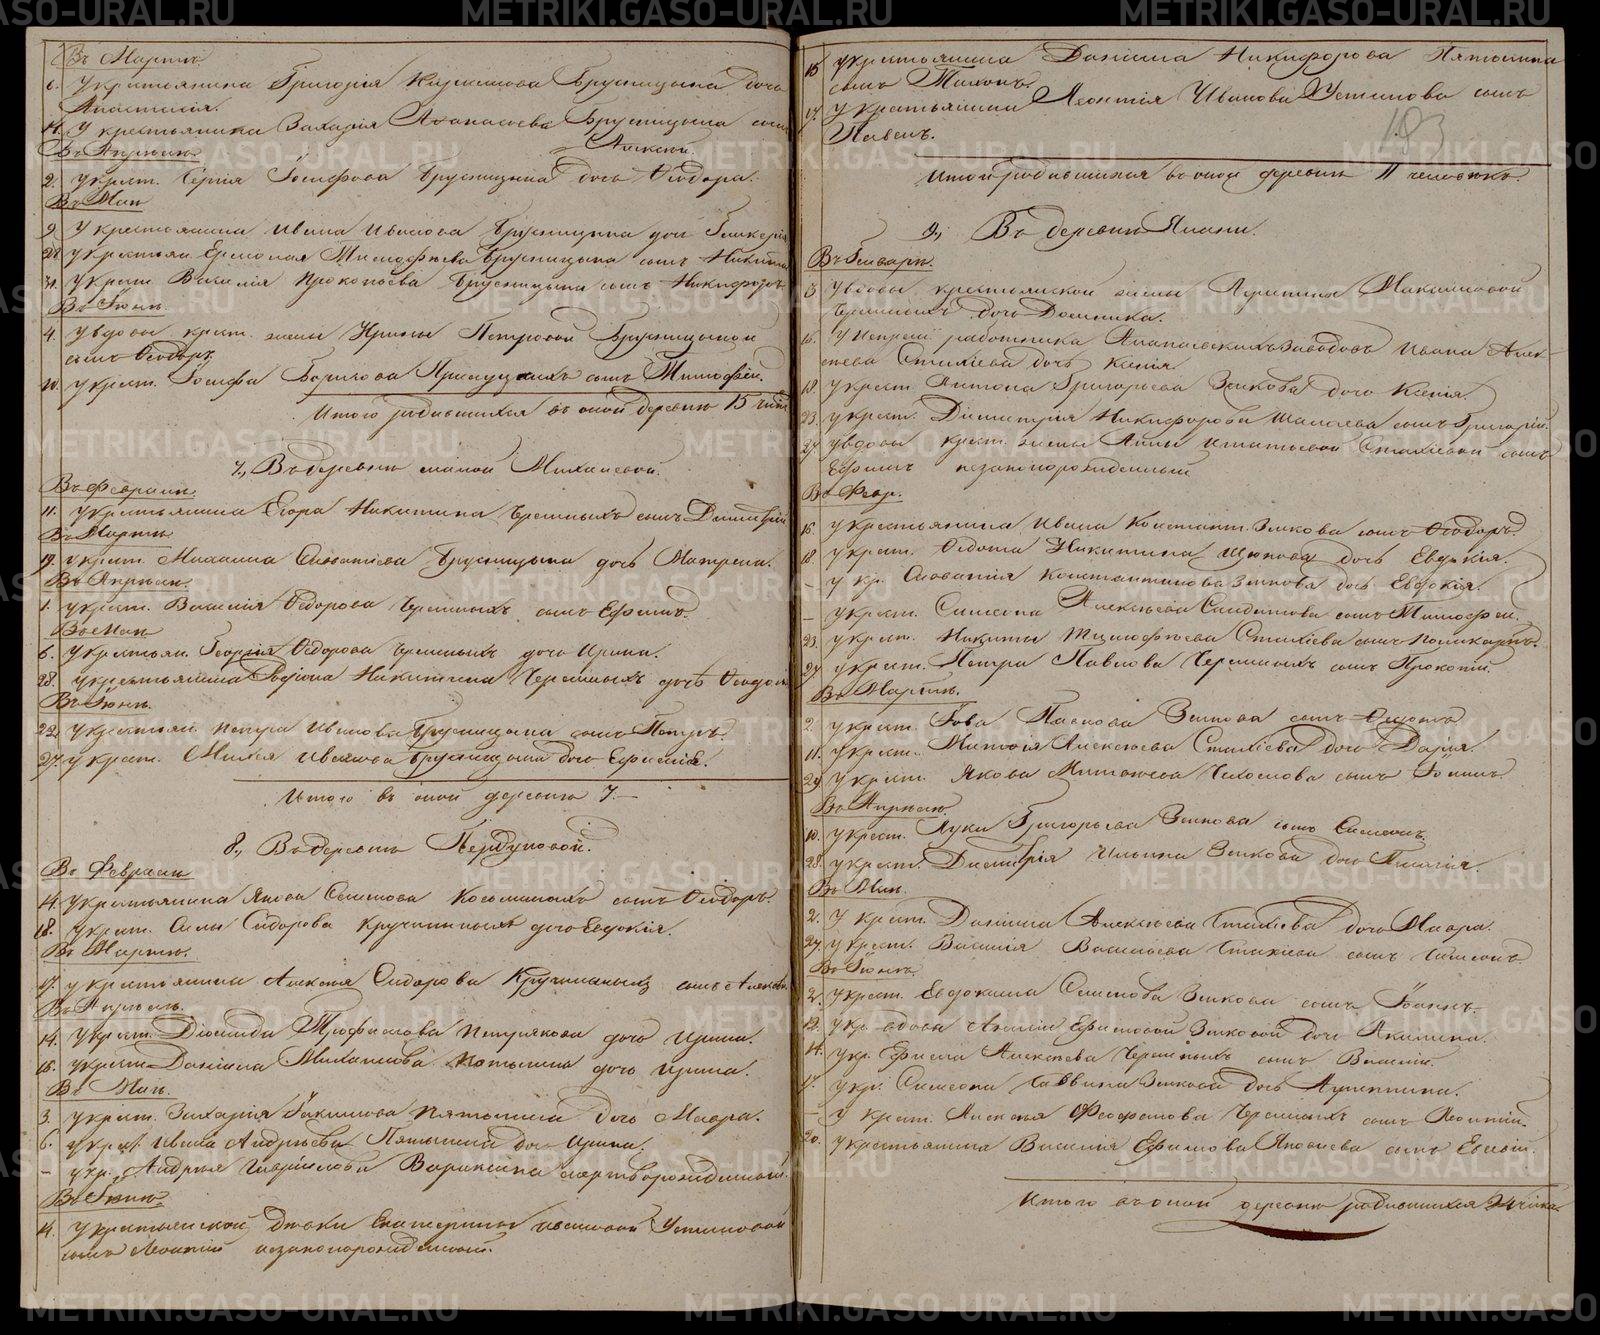 Въ Мартѣ.
6. У крестьянина Григорія Брусницына дочь
Анастасія.
14. У крестьянина Захарія Аѳанасьева Брусницына сынъ
Алексѣй.
Въ Апрѣлѣ.
2. у крест. Сергія Іосифова Брусницына дочь Ѳеодора.
Въ Маѣ
9. У крестьянина Ивана Иванова Брусницына дочь Гликерія
28. у крестьян. Тимофѣева Брусницына сынъ Никита
31. у крест. Василія Прокопьева Брусницына сынъ Никифоръ
Въ Іюнѣ.
4. у вдовы крест. жены Ирины Петровой Брусницыной
сынъ Ѳеодоръ.
10. у крест. Іосифа Борисова сынъ Тимофей.
Итого родившихся въ оной деревнѣ 15
7., Въ деревнѣ малой Михалевой.
Въ Февралѣ.
11. у крестьянина Егора Никитина Черемныхъ сынъ Димитрій
Въ Мартѣ
19. у крест. Михаила Савватіева Брусницына дочь Матрена.
Въ Апрѣлѣ.
1. у крест. Василія Ѳедорова Черемныхъ сынъ Ефимъ.
Въ Маѣ
6. у крестьян. Георгія Ѳедорова Черемныхъ дочь Ирина.
28. у крестьянина Родіона Никитина Черемныхъ дочь
Въ Іюнѣ.
22. у крестьян. Петра Иванова Брусницына сынъ Петръ.
27. у крест. Иванова Брусницына дочь
Итого въ оной деревнѣ 7.—
8., Въ деревнѣ
Въ Февралѣ
14. у крестьянина Якова Семенова сынъ Ѳеодоръ.
18. у крест. Силы Сидорова Кручининыхъ дочь Евдокія.
Въ Мартѣ.
17. у крестьянина Алексѣя Сидорова Кручининыхъ сынъ Алексѣй
Въ Апрѣлѣ.
14. У крест. Діомида Трофимова дочь Ирина.
16. у крест. Даніила Михайлова дочь Ирина.
Въ Маѣ.
3. у крест. Захарія Іакимова Пятыгина дочь Мавра.
6. у крест. Ивана Андреева Пятыгина дочь Ирина.
— у кр. Андрея Гаврилова мертворожденный.
Въ Іюнѣ.
14. У крестьянской дѣвки Екатерины Ивановой Устиновой
сынъ Леонтій незаконорожденный.
15. у крестьянина Даніила Никифорова Пятыгина
сынъ Тихонъ.
17. У крестьянина Леонтія Иванова Устинова сынъ
Павелъ.
193
Итого родившихся въ оной деревнѣ 11 человѣкъ.
9., Въ деревнѣ Ялани.
Въ Генварѣ.
3 у вдовы крестьянской жены Максимовой
Черемныхъ дочь Домника.
15. У работника Алапаевскихъ Заводовъ Ивана
Стихіева дочь Ксенія
18. у крест. Антона Григорьева Зыкова дочь Ксенія.
23. у крест. Димитрія Никифорова сынъ Григорій.
27. у вдовы крест. жены Анны Игнатьевой Стихіевой сынъ
Ефимъ незаконорожденный
Въ Февр.
16. у крестьянина Ивана Константин. Зыкова сынъ Ѳеодоръ.
18. у крест. Ѳедота Никитина дочь Евдокія.
— у кр. Савватія Константинова Зыкова дочь Евдокія.
— у крест. Симеона Алексѣева сынъ Тимофей.
23. у крест. Никиты Тимофеева Стихіева сынъ Поликарпъ.
27. у крест. Петра Павлова Черемныхъ сынъ Прокопій.
Въ Мартѣ.
2. у крест. Іова Павлова Зыкова сынъ
11. у крест. Алексѣева Стихіева дочь Дарія.
29. у крест. Якова сынъ Іоаннъ.
Въ Апрѣлѣ
10. у крест. Луки Григорьева Зыкова сынъ Симеонъ.
28. у крест. Димитрія Ильина Зыкова дочь
Въ Маѣ.
2. У крест. Даніила Алексѣева Стихіева дочь Мавра.
27. у крест. Василія Васильева Стихіева сынъ
Въ Іюнѣ.
2. у крест. Евдокима Семенова Зыкова сынъ Іоаннъ.
12. у кр. вдовы Ефимовой Зыковой дочь Акилина.
14. у кр. Ефима Алексѣева Черемныхъ сынъ Василій.
17. у кр. Симеона Саввина Зыкова дочь
— у крест. Алексѣя Феофанова Черемныхъ сынъ Леонтій.
20. у крестьянина Василія Ефимова сынъ Евсевій.
Итого въ оной деревнѣ родившихся